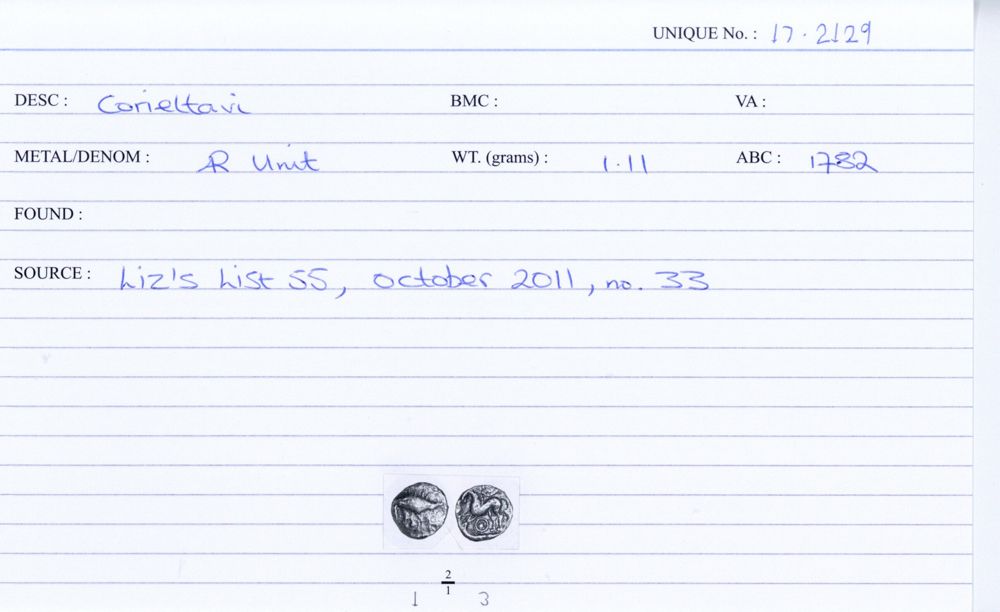 UNIQUE No. : 17 · 2129
DESC : Corieltavi BMC : VA :
METAL/DENOM : AR Unit WT. (grams) : 1·11 ABC : 1782
FOUND :
SOURCE : Liz's List 55, october 2011, no. 33
2
1
1 3